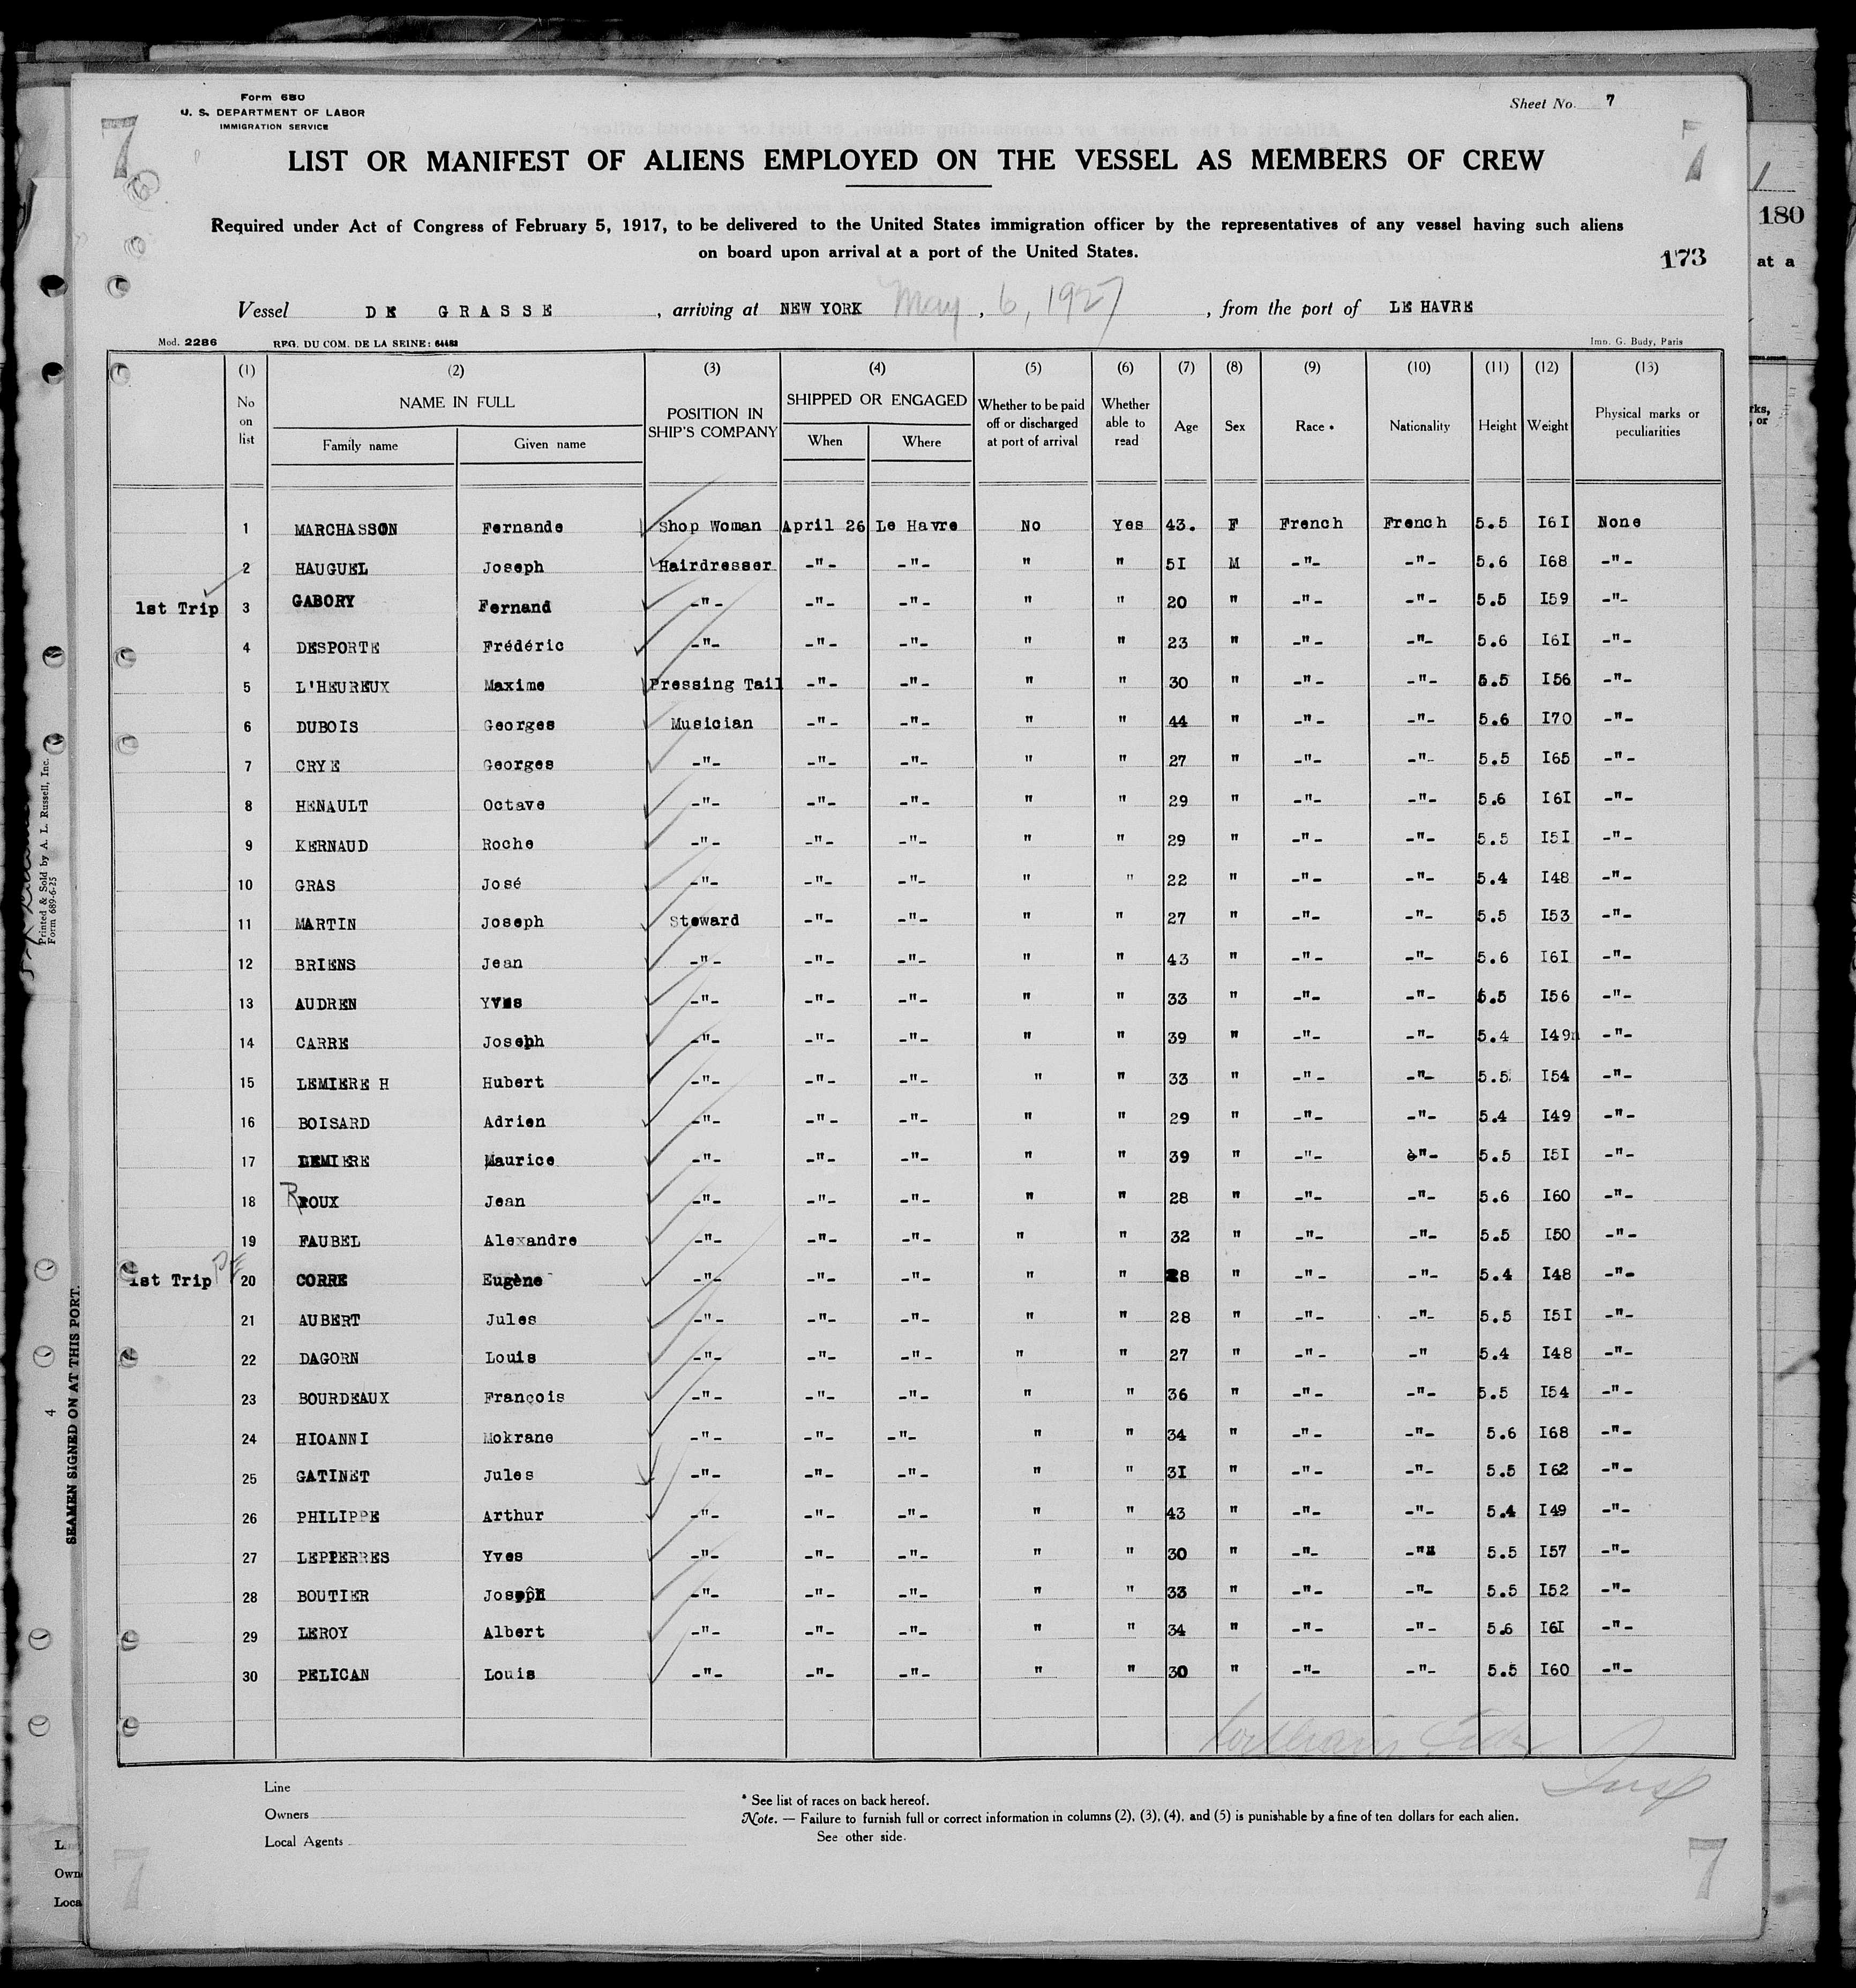 Form 680
U. S. DEPARTMENT OF LABOR
IMMIGRATION SERVICE
Sheet No. 7
7
7
LIST OR MANIFEST OF ALIENS EMPLOYED ON THE VESSEL AS MEMBERS OF CREW
Required under Act of Congress of February 5, 1917, to be delivered to the United States immigration officer by the representatives of any vessel having such aliens
on board upon arrival at a port of the United States.
173
180
at a
Vessel DE GRASSE , arriving at NEW YORK May , 6, 1927 , from the port of LE HAVRE
Mod. 2286 REG. DU COM. DE LA SEINE: 64483 Imp. G. Budy, Paris
(1) (2) (3) (4) (5) (6) (7) (8) (9) (10) (11) (12) (13)
No on list NAME IN FULL Family name Given name POSITION IN SHIP'S COMPANY SHIPPED OR ENGAGED When Where Whether to be paid off or discharged at port of arrival Whether able to read Age Sex Race * Nationality Height Weight Physical marks or peculiarities
1 MARCHASSON Fernande Shop Woman April 26 Le Havre No Yes 43. F French French 5.5 I6I None
2 HAUGUEL Joseph Hairdresser -"- -"- " " 5I M -"- -"- 5.6 I68 -"-
1st Trip 3 GABORY Fernand -"- -"- -"- " " 20 " -"- -"- 5.5 I59 -"-
4 DESPORTE Frédéric -"- -"- -"- " " 23 " -"- -"- 5.6 I6I -"-
5 L'HEUREUX Maxime Pressing Tail -"- -"- " " 30 " -"- -"- 5.5 I56 -"-
6 DUBOIS Georges Musician -"- -"- " " 44 " -"- -"- 5.6 I70 -"-
7 CRYE Georges -"- -"- -"- " " 27 " -"- -"- 5.5 I65 -"-
8 HENAULT Octave -"- -"- -"- " " 29 " -"- -"- 5.6 I6I -"-
9 KERNAUD Roche -"- -"- -"- " " 29 " -"- -"- 5.5 I5I -"-
10 GRAS José -"- -"- -"- " " 22 " -"- -"- 5.4 I48 -"-
11 MARTIN Joseph Steward -"- -"- " " 27 " -"- -"- 5.5 I53 -"-
12 BRIENS Jean -"- -"- -"- " " 43 " -"- -"- 5.6 I6I -"-
13 AUDREN Yves -"- -"- -"- " " 33 " -"- -"- 5.5 I56 -"-
14 CARRE Joseph -"- -"- -"- " " 39 " -"- -"- 5.4 I49n -"-
15 LEMIERE H Hubert -"- -"- -"- " " 33 " -"- -"- 5.5 I54 -"-
16 BOISARD Adrien -"- -"- -"- " " 29 " -"- -"- 5.4 I49 -"-
17 LEMIERE Maurice -"- -"- -"- " " 39 " -"- è"- 5.5 I5I -"-
18 R ROUX Jean -"- -"- -"- " " 28 " -"- -"- 5.6 I60 -"-
19 FAUBEL Alexandre -"- -"- -"- " " 32 " -"- -"- 5.5 I50 -"-
1st Trip 20 CORRE Eugène -"- -"- -"- " " 28 " -"- -"- 5.4 I48 -"-
21 AUBERT Jules -"- -"- -"- " " 28 " -"- -"- 5.5 I5I -"-
22 DAGORN Louis -"- -"- -"- " " 27 " -"- -" 5.4 I48 -"-
23 BOURDEAUX François -"- -"- -"- " " 36 " -"- -"- 5.5 I54 -"-
24 HIOANNI Mokrane -"- -"- -"- " " 34 " -"- -"- 5.6 I68 -"-
25 GATINET Jules -"- -"- -"- " " 3I " -"- -"- 5.5 I62 -"-
26 PHILIPPE Arthur -"- -"- -"- " " 43 " -"- -"- 5.4 I49 -"-
27 LEPPERRES Yves -"- -"- -"- " " 30 " -"- -"" 5.5 I57 -"-
28 BOUTIER Joseph -"- -"- -"- " " 33 " -"- -"- 5.5 I52 -"-
29 LEROY Albert -"- -"- -"- " " 34 " -"- -"- 5.6 I6I -"-
30 PELICAN Louis -"- -"- -"- " " 30 " -"- -"- 5.5 I60 -"-
William
Insp
Line
Owners
Local Agents
* See list of races on back hereof.
Note. — Failure to furnish full or correct information in columns (2), (3), (4), and (5) is punishable by a fine of ten dollars for each alien.
See other side.
7
7
Printed & Sold by A. L. Russell, Inc.
Form 689-6-25
4
SEAMEN SIGNED ON AT THIS PORT.